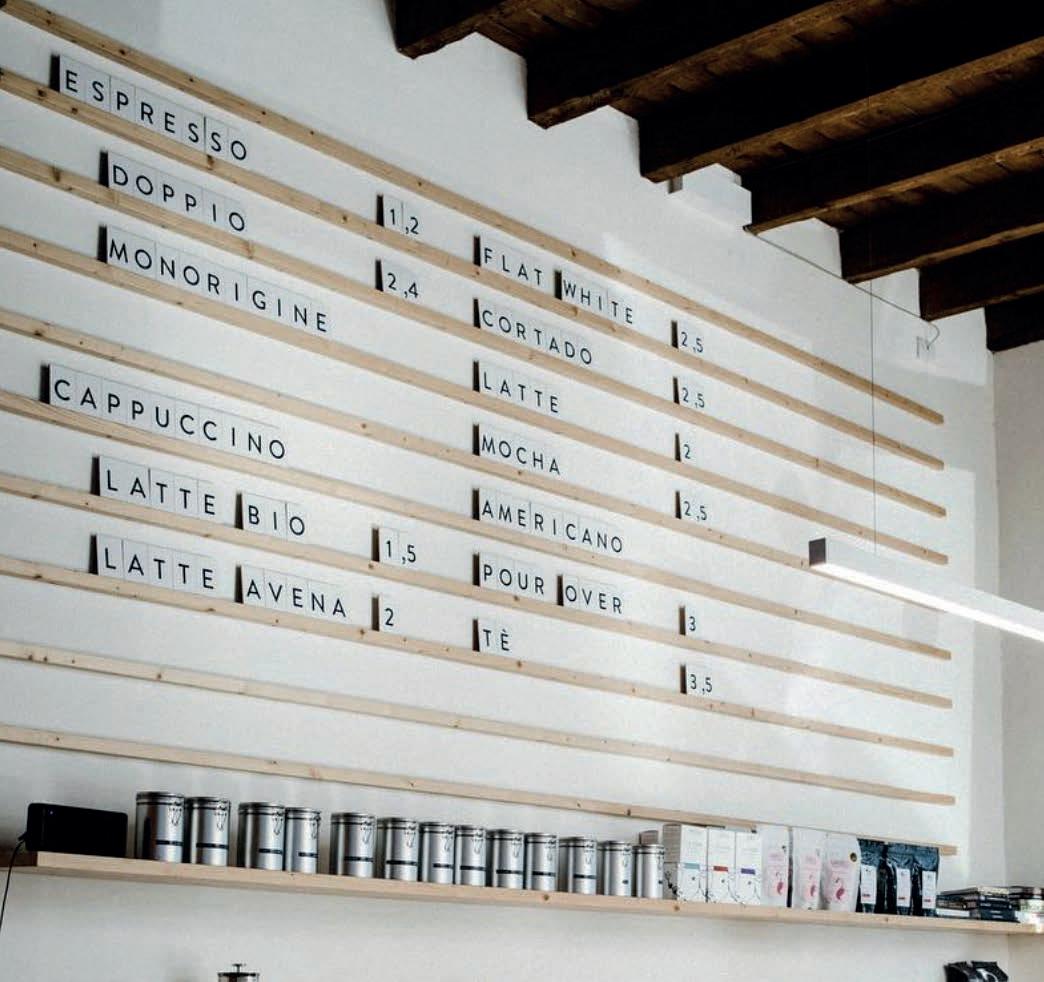 ESPRESSO 1,2 FLAT WHITE 2,5
DOPPIO 2,4 CORTADO 2,5
MONORIGINE LATTE 2
MOCHA 2,5
CAPPUCCINO AMERICANO
LATTE BIO 1,5 POUR OVER 3
LATTE AVENA 2 TÈ 3,5